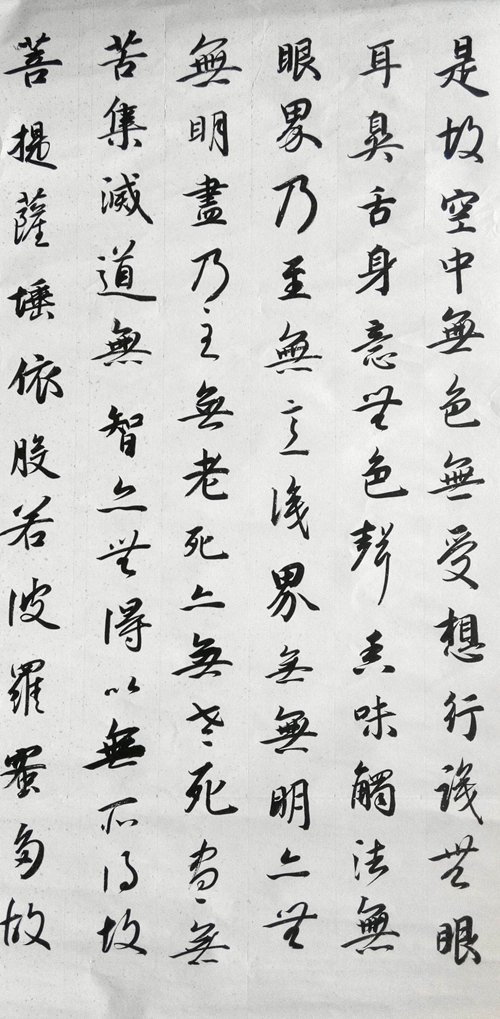 是故空中無色無受想行識無眼
耳鼻舌身意無色聲香味觸法無
眼界乃至無意識界無無明亦無
無明盡乃至無老死亦無老死盡無
苦集滅道無智亦無得以無所得故
菩提薩埵依般若波羅蜜多故